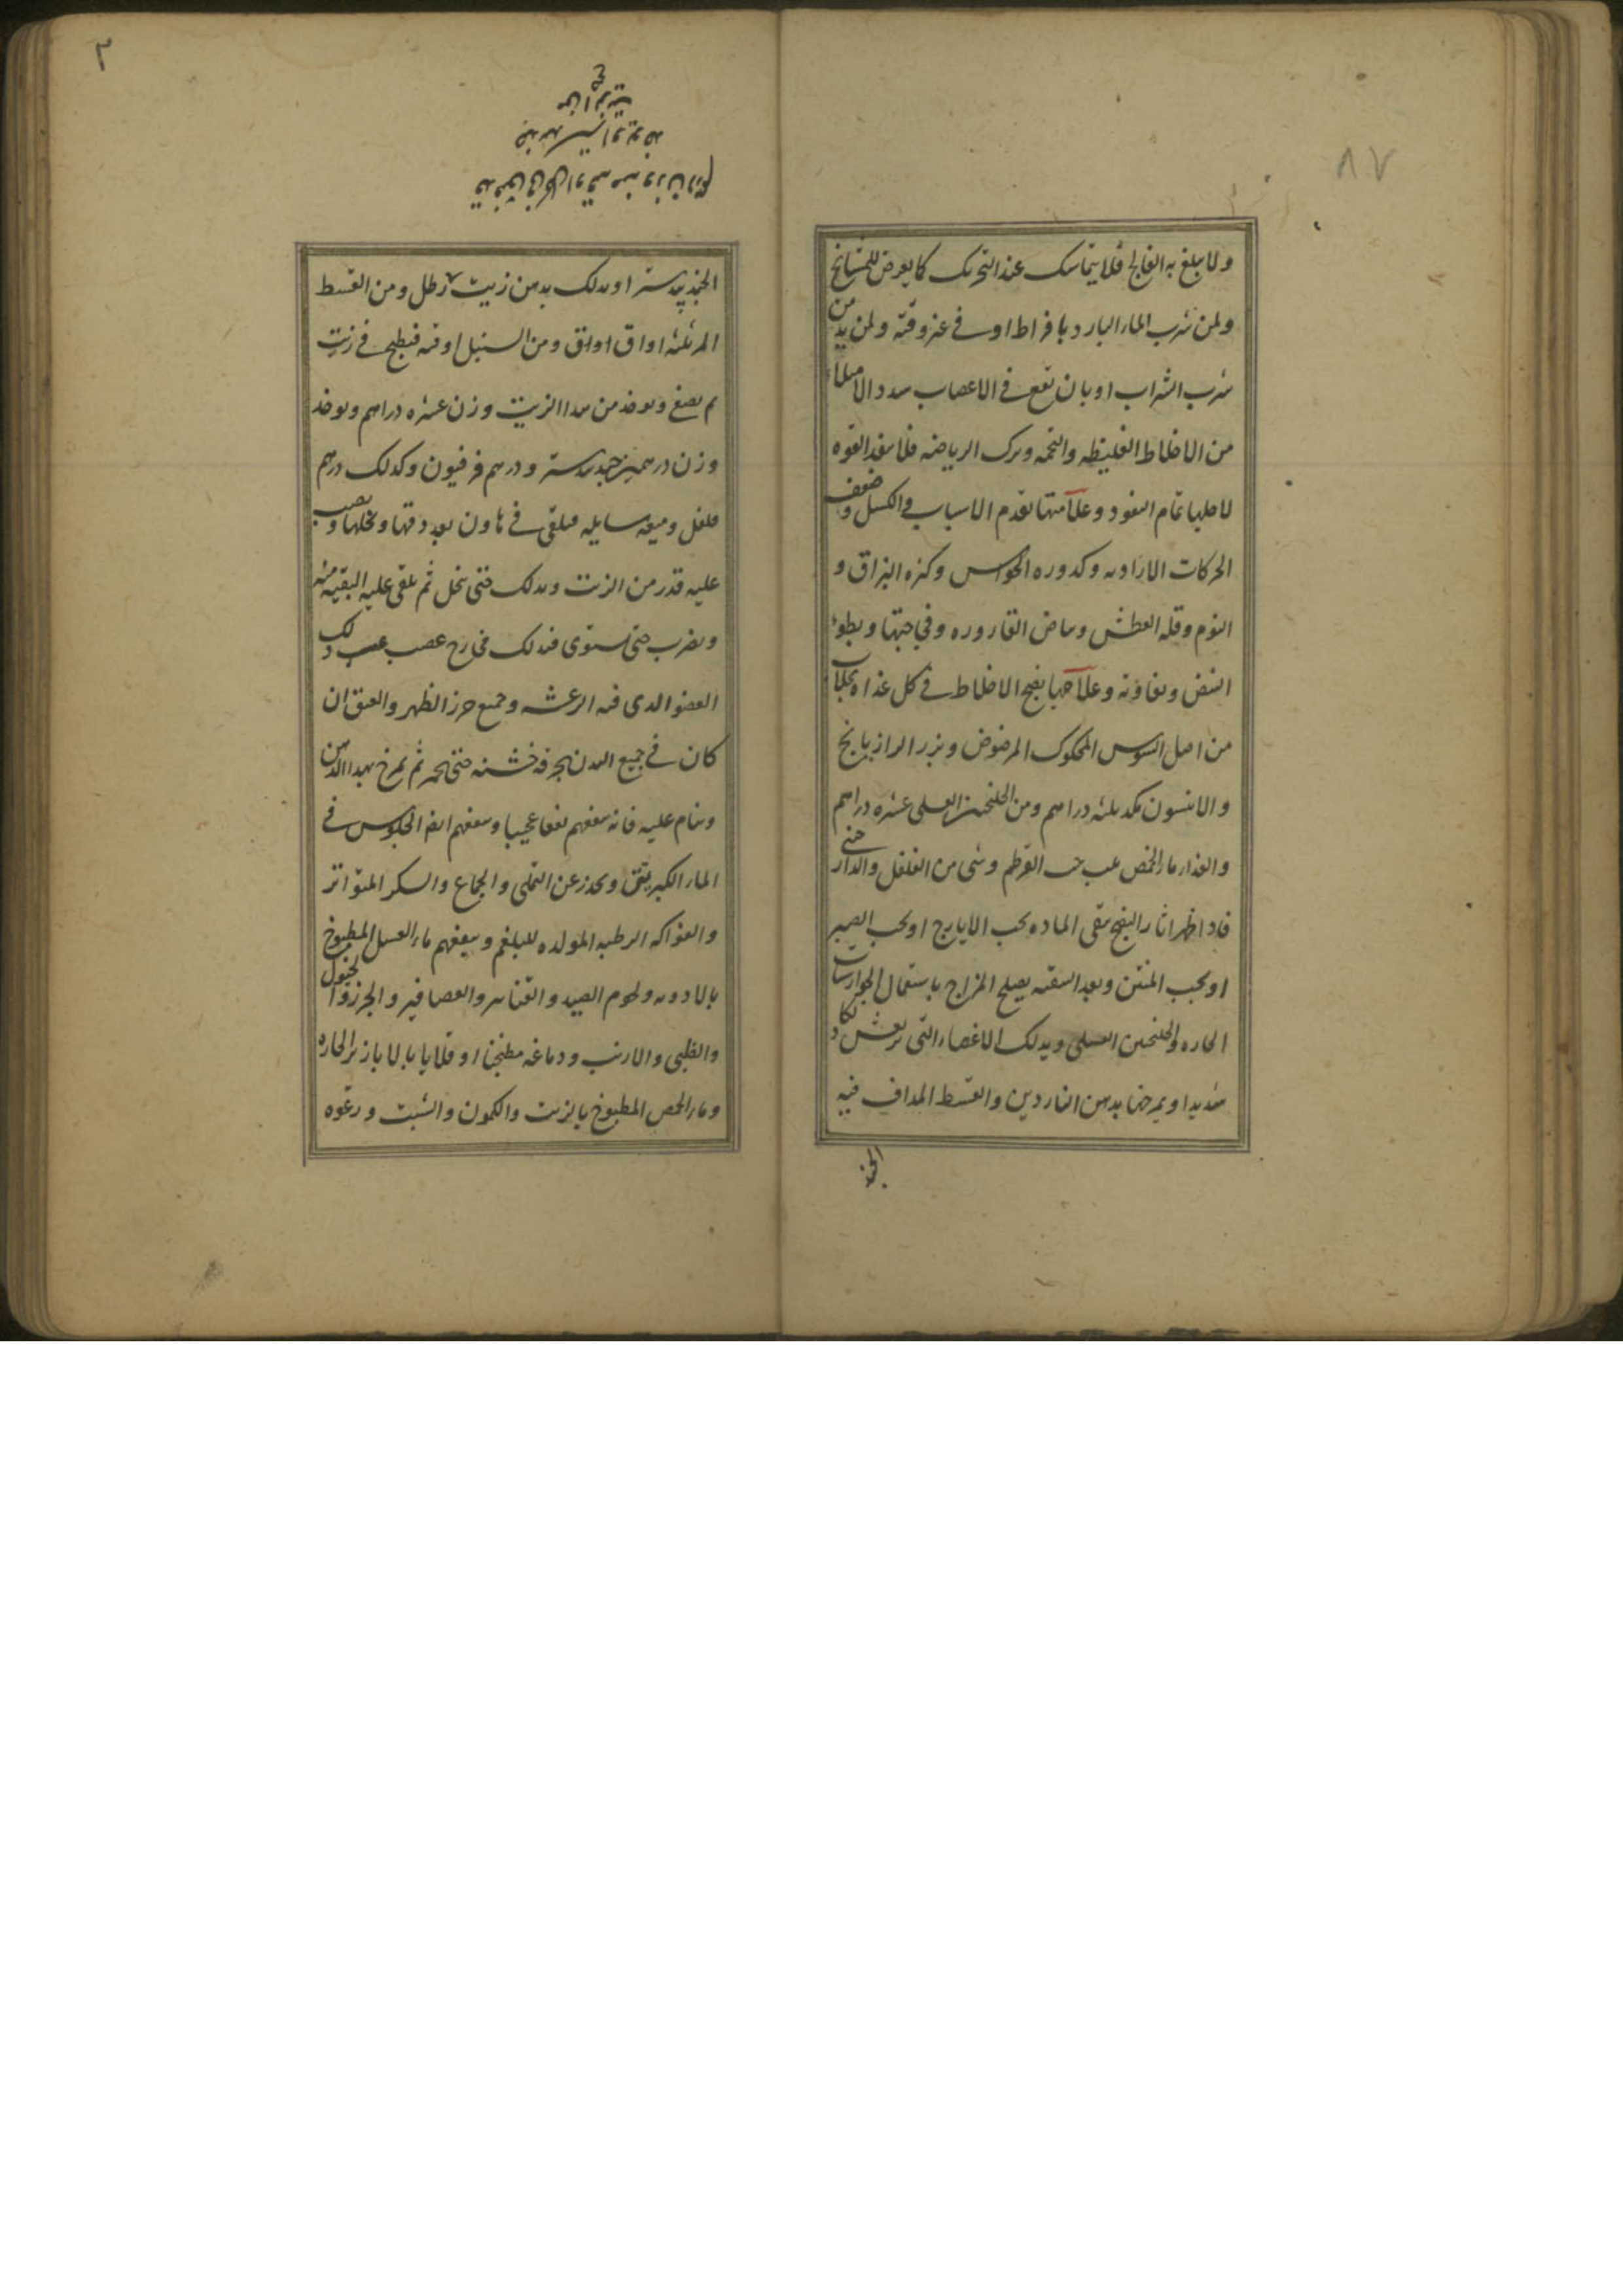 ٨٧
ولا يبلغ به الفالج فلا يتماسك عند التحريك كما يعرض للمشايخ
ولمن شرب الماء البارد بافراط او في غير وقته ولمن يدمن
شرب الشراب او بان تقع في الاعصاب سدد الامتلاء
من الاخلاط الغليظه والتخمه وترك الرياضه فلا ينفذ القوه
لاجلها تمام النفوذ وعلامتها تقدم الاسباب والكسل وضعف
الحركات الاراديه وكدوره الحواس وكثره البزاق و
النوم وقله العطش وبياض القاروره وفجاجتها وبطوء
النبض وتفاوته وعلاجها نضج الاخلاط في كل غداه بجلاب
من اصل السوس المحكوك المرضوض وبزر الرازيانج
والانيسون مكد ثلثه دراهم ومن الجلنجبين العسلى عشره دراهم
والغذاء ماء الحمص حب القرطم وشى من الفلفل والدارصنى
فاذا ظهر اثار النضج ينقى الماده بحب الايارج او بحب الصبر
او بحب المنتن وبعد التنقيه يصلح المزاج باستعمال الجوارشات
الحاره والجلنجبين العسلى ويدلك الاعضاء التى ترتعش دلكا
شديدا ويمرخها بدهن الناردين والقسط المداف فيه
الجند
٣
الجندبيدستر او يدلك بدهن زيت رطل ومن القسط
المر ثلثه اواق اواق ومن السنبل اوقيه فيطبخ في زيت
ثم يصفى ويوخذ من هذا الزيت وزن عشره دراهم ويوخذ
وزن درهمين جندبيدستر ودرهم فرفيون وكذلك درهم
فلفل وميعه سايله فيلقى في هاون بعد دقها ونخلها ويصب
عليه قدر من الزيت ويدلك حتى ينحل ثم يلقى عليه البقيه منه
ويضرب حتى يستوى فيدلك مخارج عصب ذلك
العضو الذى فيه الرعشه وجميع خرز الظهر والعنق ان
كان في جميع البدن بخرقه خشنه حتى يحمر ثم يمرخ بهذا الدهن
وينام عليه فانه ينفعهم نفعا عجيبا وينفعهم ايضا الجلوس في
الماء الكبريتى ويحذر عن التملى والجماع والسكر المتواتر
والفواكه الرطبه المولده للبلغم وينفعهم ماء العسل المطبوخ
بالادويه ولحوم الصيد والقنابر والعصافير والجزر والحجول
والظبى والارنب ودماغه مطبخا او قلايا بالابازير الحاره
وماء الحمص المطبوخ بالزيت والكمون والشبت ورغوه